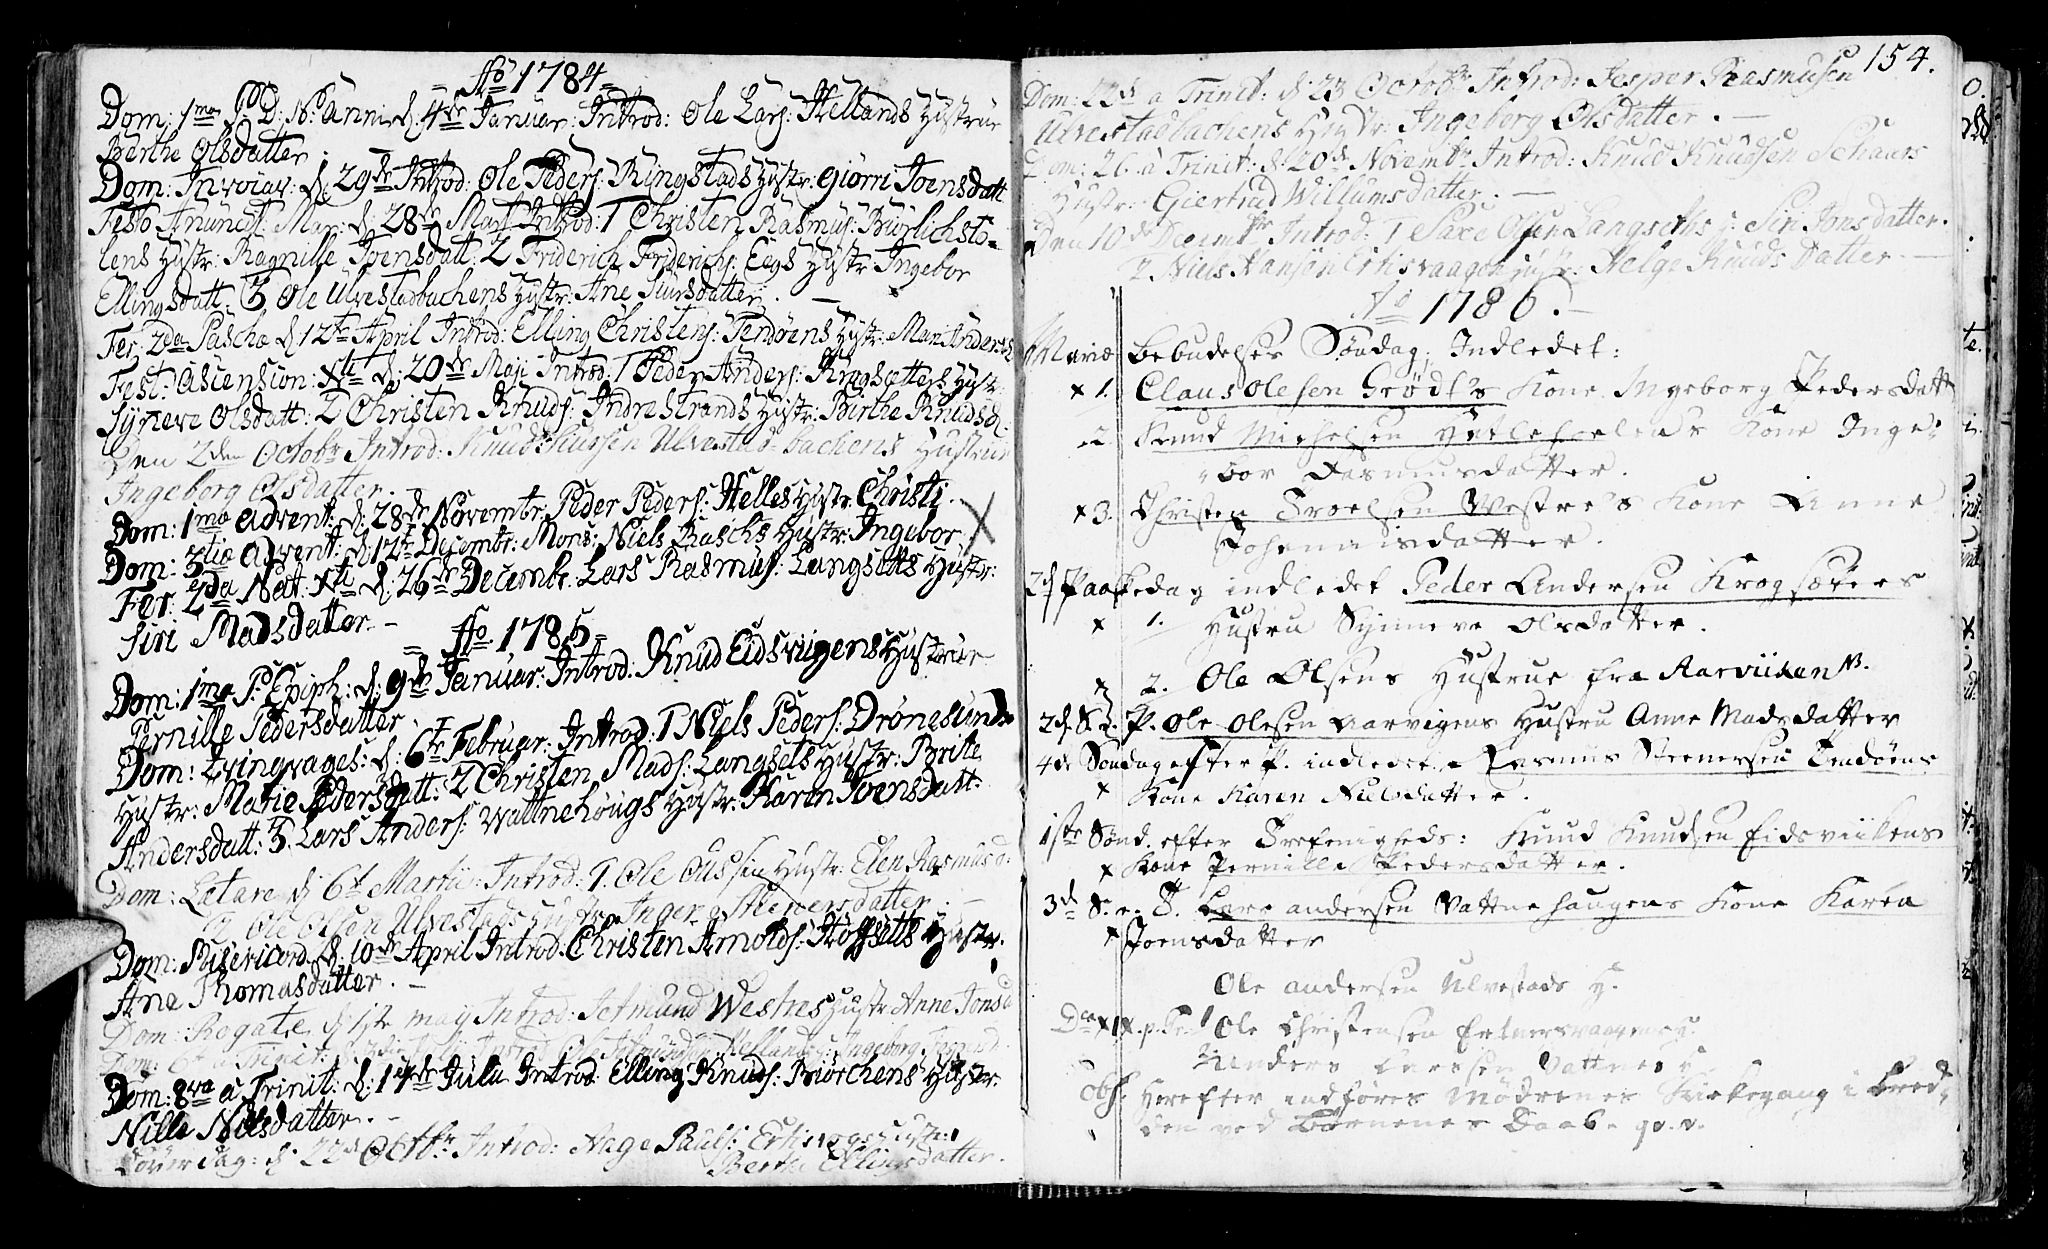 = Ao 1784 =
Dom: 1ma P: D: N: anni d: 4de Januar: Introd: Ole Lars: Hellands Hystrue
Berthe Olsdatter
Dom: Invoiav: d: 29de Introd: Ole Peders: Ringstads Hystr: Giørri Joensdatt
Festo Anunctl: Mar: d: 28de Mart Introd: 1 Christen Rasmus: Buolichsto-
lens Hystr: Ragnille Joensdatt: 2 Friderich Friderichs: Eegs Hystr: Ingebor
Ellingsdatt: 3 Ole Ulvestadbachens Hystr: Ane Siursdatter. —
Fer: 2da Pascha d: 12te April Introd: Elling Christens: Tendøens Hystr: Mari Anders
Fest: Ascension: Xti d: 20de Maji Introd: 1 Peder Anders: Krogsætters Hystr:
Syneve Olsdatt: 2 Christen Knuds: Indrestrands Hystr: Birthe Knudsd:
Den 2den Octobr Introd: Knud Siursen Ulvestad-bachens Hustrue
Ingeborg Olsdatter.
Dom: 1ma Advent: d: 28de Novembr: Peder Peders: Helles Hystr: Christi
Dom: 3tia Advent: d: 12te Decembr: Mons: Niels Raschs Hystr: Ingebor X
Fer: 2da Nat: Xti d: 26de Decembr: Lars Rasmus: Langsetts Hystr:
Siri Madsdatter —
= Ao 1785 =
Dom: 1ma P: Epiph: d: 9de Januar: Introd: Knud Eidsvigens Hystrue
Pernille Pedersdatter.
Dom: Qvinqvages: d: 6te Februar: Introd: 1 Niels Peders: Drønesunds
Hystr: Marie Pedersdatt: 2 Christen Mads: Langsets Hystr: Brite
Andersdatt: 3. Lars Anders: Wattnehougs Hystr: Karen Joensdatt:
Dom: Lætare d: 6te Martii: Introd: 1. Ole Hystr: Elen Rasmusd:
2 Ole Olsen Ulvestads Hystr: Inger datter. —
Dom: Misericord d: 10de April Introd: Christen Arnolds: Hoffsetts Hystr:
Ane Thomasdatter. —
Dom: Rogate d: 1te maij Introd: Setmund Westres Hystr: Anne Jonsd
Dom: 6te a Trinit: Introd: Hellands Ingeborg
Dom: 8va a Trinit: d: 17de Julii Introd: Elling Knuds: Biørchens Hystr:
Nille Nilsdatter. —
Løverdag: d: 22d Octbr: Introd: Aage Pauls: Hystr:
Berthe Ellingsdatter.
154.
Dom: 22d a Trinit: d: 23 Octobr: Introd: Jesper Rasmusen
Ulvestadbachens Hystr: Ingeborg Olsdatter. —
Dom: 26. a Trinit: d: 20d Novembr Introd: Knud Knudsen Schaars
Hustr: Giertrud Willumsdatter. —
Den 10de Decembr Introd: 1 Saxe Olsen Langseths H: Siri Jonsdatter.
2 Niels Hansen Hystr: Helge Knuds Datter —
Ao 1786. —
Mariæ Bebudelses Søndag, Indledet:
x 1. Claus Olesen Grødt's Kone Ingeborg Pedersdatt
2. Knud Michelsen Kone Inge-
bor Rasmusdatter.
x 3. Christen Troelsen Westre's Kone Anne
Johannisdatter.
2d Paaskedag indledet Peder Andersen Krogsæters
x 1. Hustru Synneve Olsdatter.
2. Ole Olsens Hustrue fra Aarviiken
2d S. e. P. Ole Olesen Aarvigens Hustru Anne Madsdatter
4de Søndag efter P. indledet Rasmus Steenersen Tendøens
x Kone Karen Nielsdatter.
1ste Sønd. efter Trefenigheds: Knud Knudsen Eidsviikens
x Kone Pernille Pedersdatter.
3d S. e. T. Lars Andersen Vattnehaugens Kone Karen
x Joensdatter
Ole Andersen Ulvestads H.
Dca XIX. p. Tr. 1 Ole Christensen H.
2 Anders Larssen Vattnes H
Obs. Herefter indføres Mødrenes Kirkegang i Bred-
den ved Børnenes Daab. qv. v.